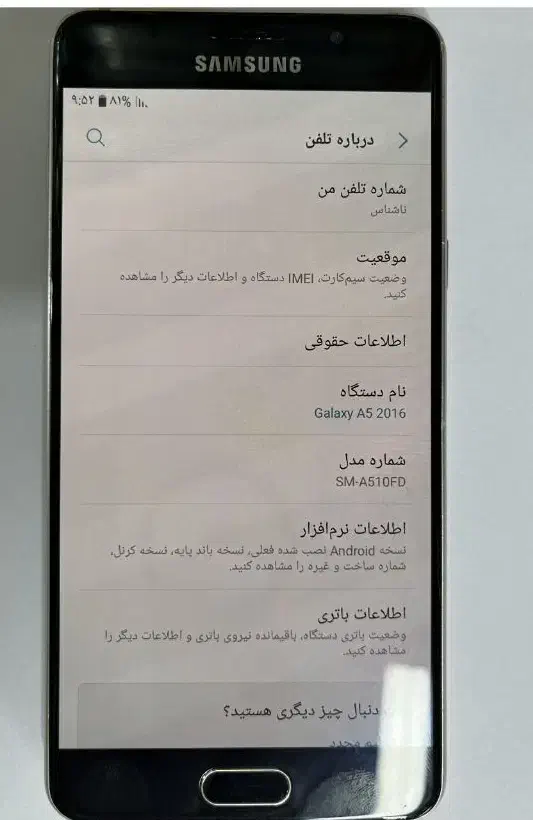 SAMSUNG
۹:۵۲ ۸۱%
درباره تلفن
شماره تلفن من
ناشناس
موقعیت
وضعیت سیم‌کارت، IMEI دستگاه و اطلاعات دیگر را مشاهده
کنید.
اطلاعات حقوقی
نام دستگاه
Galaxy A5 2016
شماره مدل
SM-A510FD
اطلاعات نرم‌افزار
نسخه Android نصب شده فعلی، نسخه باند پایه، نسخه کرنل،
شماره ساخت و غیره را مشاهده کنید.
اطلاعات باتری
وضعیت باتری دستگاه، باقیمانده نیروی باتری و اطلاعات دیگر را
مشاهده کنید.
دنبال چیز دیگری هستید؟